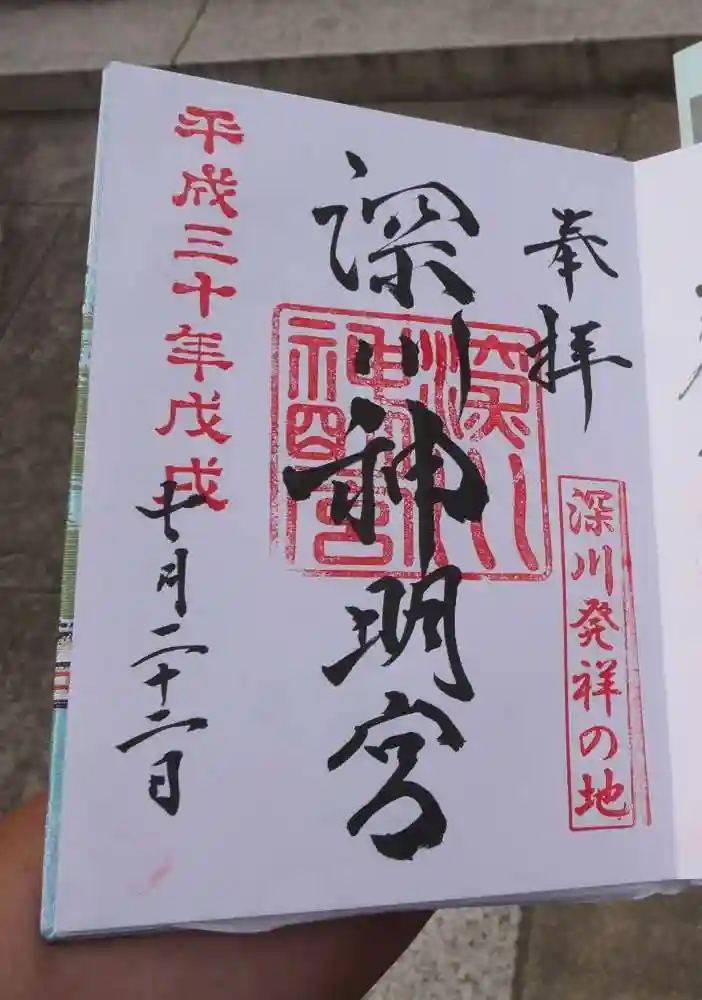 奉拝
深川発祥の地
深川神明宮
平成三十年戊戌
七月二十二日